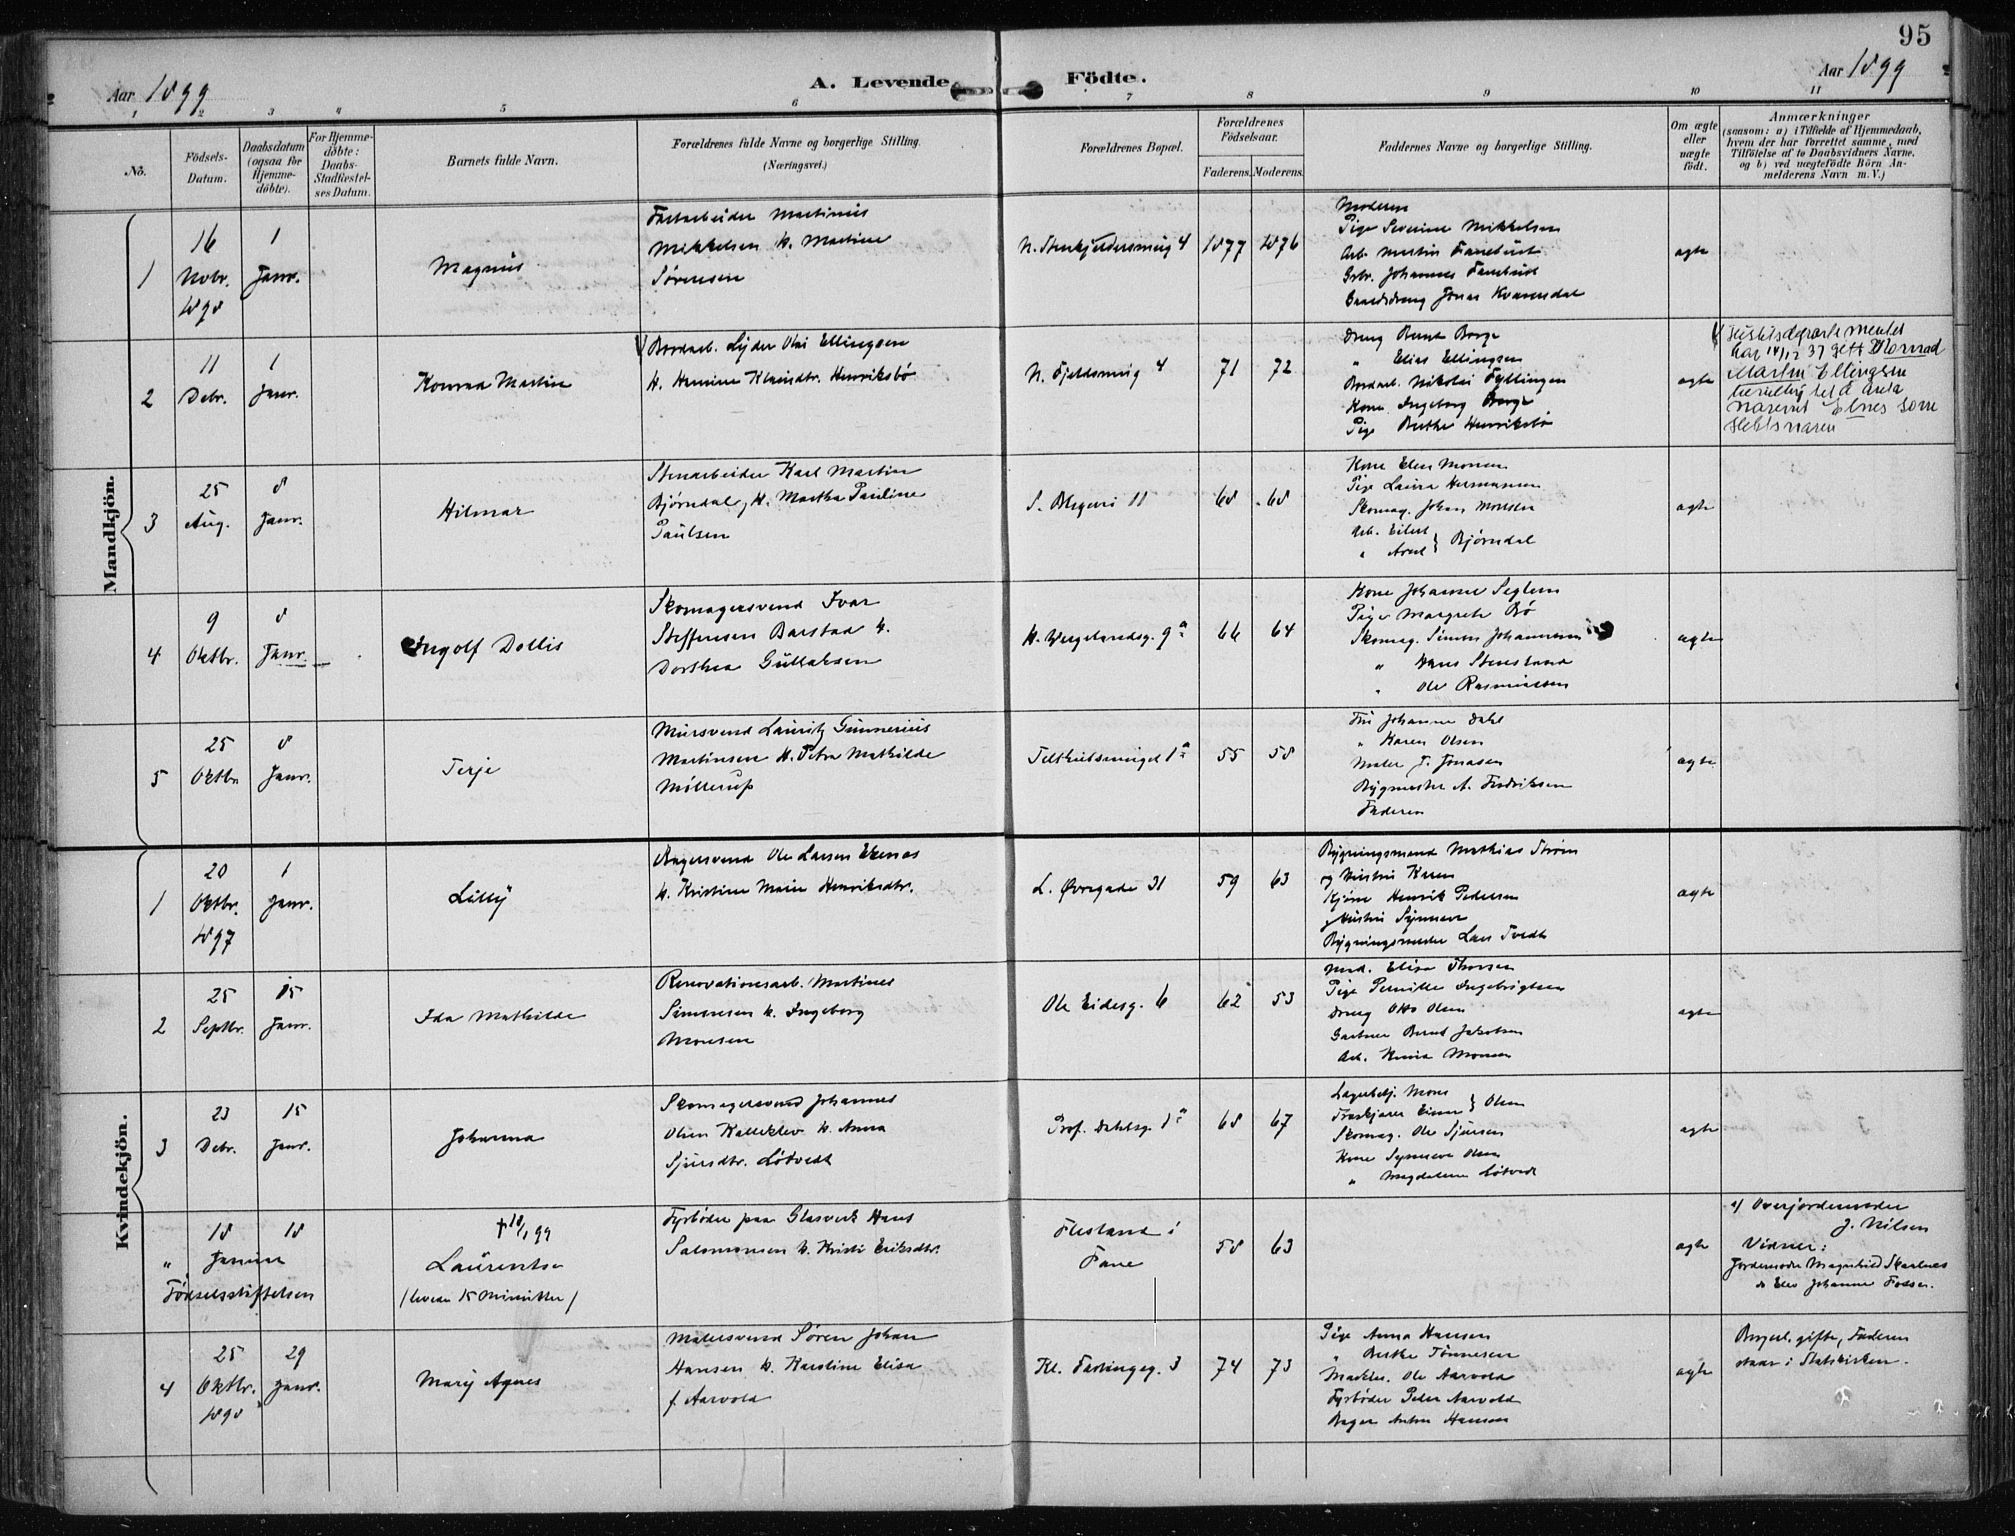 95
Aar 1899
A. Levende
Födte.
Aar 1899
1 2 3 4 5 6 7 8 9 10 11
No.
Födsels-
Datum.
Daabsdatum
(ogsaa for
Hjemme-
döbte).
For Hjemme-
døbte:
Daabs-
Stadfæstel-
ses Datum.
Barnets fulde Navn.
Forældrenes fulde Navne og borgerlige Stilling.
(Næringsvei.)
Forældrenes Bopæl.
Forældrenes
Födselsaar.
Faderens. Moderens.
Faddernes Navne og borgerlige Stilling.
Om ægte
eller
uægte
födt.
Anmærkninger
(saasom: a) i Tilfælde af Hjemmedaab,
hvem der har forrettet samme, med
Tilföielse af to Daabsvidners Navne,
og b) ved uægtefödte Börn An-
melderens Navn m. V.)
Mandkjön.
1
16
Novbr.
1898
1
Janr.
Magnus
Fastarbeider Martinius
Mikkelsen h. Martine
Sørensen
N. Stenkjeldersmug 4
1877
1876
Moderen
Pige Severine Mikkelsen
Arb. Martin Fanebust
Grbr. Johannes Fanebust
Gaardsdreng Jonas Kvarendal
ægte
2
11
Debr.
1
Janr.
Konrad Martin
Bordarb. Lyder Olai Ellingsen
h. Hervine Klausdtr. Henriksbø
N. Fjeldsmug 4
71
72
Dreng Bernt Borge
" Elias Ellingsen
Bordarb. Nikolai Fyllingen
Kone Ingeborg Borge
Pige Berthe Henriksbø
ægte
Justisdepartementet
har 14/12 37 gitt Konrad
Martin Ellingsen
bevilling til å anta
navnet Elnes som
slektsnavn
3
25
Aug.
8
Janr.
Hilmar
Stenarbeider Karl Martin
Bjørndal, h. Martha Pauline
Paulsen
S. Blegevei 11
68
68
Kone Elen Monsen
Pige Laura Hermansen
Skomag. Johan Monsen
Arb. Eilert
" Arnt } Bjørndal
ægte
4
9
Oktbr.
8
Janr.
Ingolf Dollis
Skomagersvend Ivar
Steffensen Barstad h.
Dorthea Gullaksen
H. Wergelandsg. 9a
66
64
Kone Johanne Seglem
Pige Margrete Bø
Skomag. Simon Johannesen
" Hans Stensland
" Ole Rasmussen
ægte
5
25
Oktbr
8
Janr.
Terje
Mursvend Lauritz Gunnerius
Martinsen h. Petra Mathilde
Möllerup
Telthusmuget 1a
55
58
Fru Johanne Dahl
" Karen Olsen
Maler J. Jonasen
Bygmester A. Fredriksen
Faderen
ægte
Kvindekjön.
1
20
Oktbr.
1897
1
Janr.
Lilly
Bagersvend Ole Larsen Ekenæs
h. Kristine Marie Henriksdtr.
L. Øvregade 31
59
63
Bygningsmand Mathias Strøm
og Hustru Karen
Kjører Henrik Pedersen
og Hustru Synneve
Bygningssnedker Lars Tvedt
ægte
2
25
Septbr.
15
Janr.
Ida Mathilde
Renovationsarb. Martines
Simonsen h. Ingeborg
Monsen
Ole Eidesg. 6
62
53
Mad. Elisa Thorsen
Pige Pernille Ingebrigtsen
Dreng Otto Olsen
Gartner Bernt Jakobsen
Arb. Monsen
ægte
3
23
Debr.
15
Janr.
Johanna
Skomagersvend Johannes
Olsen Kalleklev h. Anna
Sjursdtr. Løtvedt
Prof. Dahlsg. 1a
68
67
Lagerbetj. Mons
Einar } Olsen
Skomag. Ole Sjursen
Kone Synneve Olsen
" Magdalene Løtvedt
ægte
"
18
Januar
Fødselsstiftelsen
18
† 18/1 99
Laurentse
(levede 15 Minutter)
Fyrbøder paa Glasverk Hans
Salomonsen h. Kristi Eriksdtr.
Flesland i
Fane
58
63
ægte
a) Overjordemoder
J. Nilsen
Vidner:
Jordemoder Magnhild Skarlnes
do Elen Johanne Fosse.
4
25
Oktbr.
1898
29
Janr.
Mary Agnes
Malersvend Søren Johan
Hansen h. Karoline Elisa
f. Aarvold
Kl. Farlingeg. 3
74
73
Pige Anna Hansen
" Berthe Tønnesen
Ole Aarvold
Fyrbøder Peder Aarvold
Bager Anton Hansen
ægte
Borgerl. gifte, Faderen
staar i Statskirken.